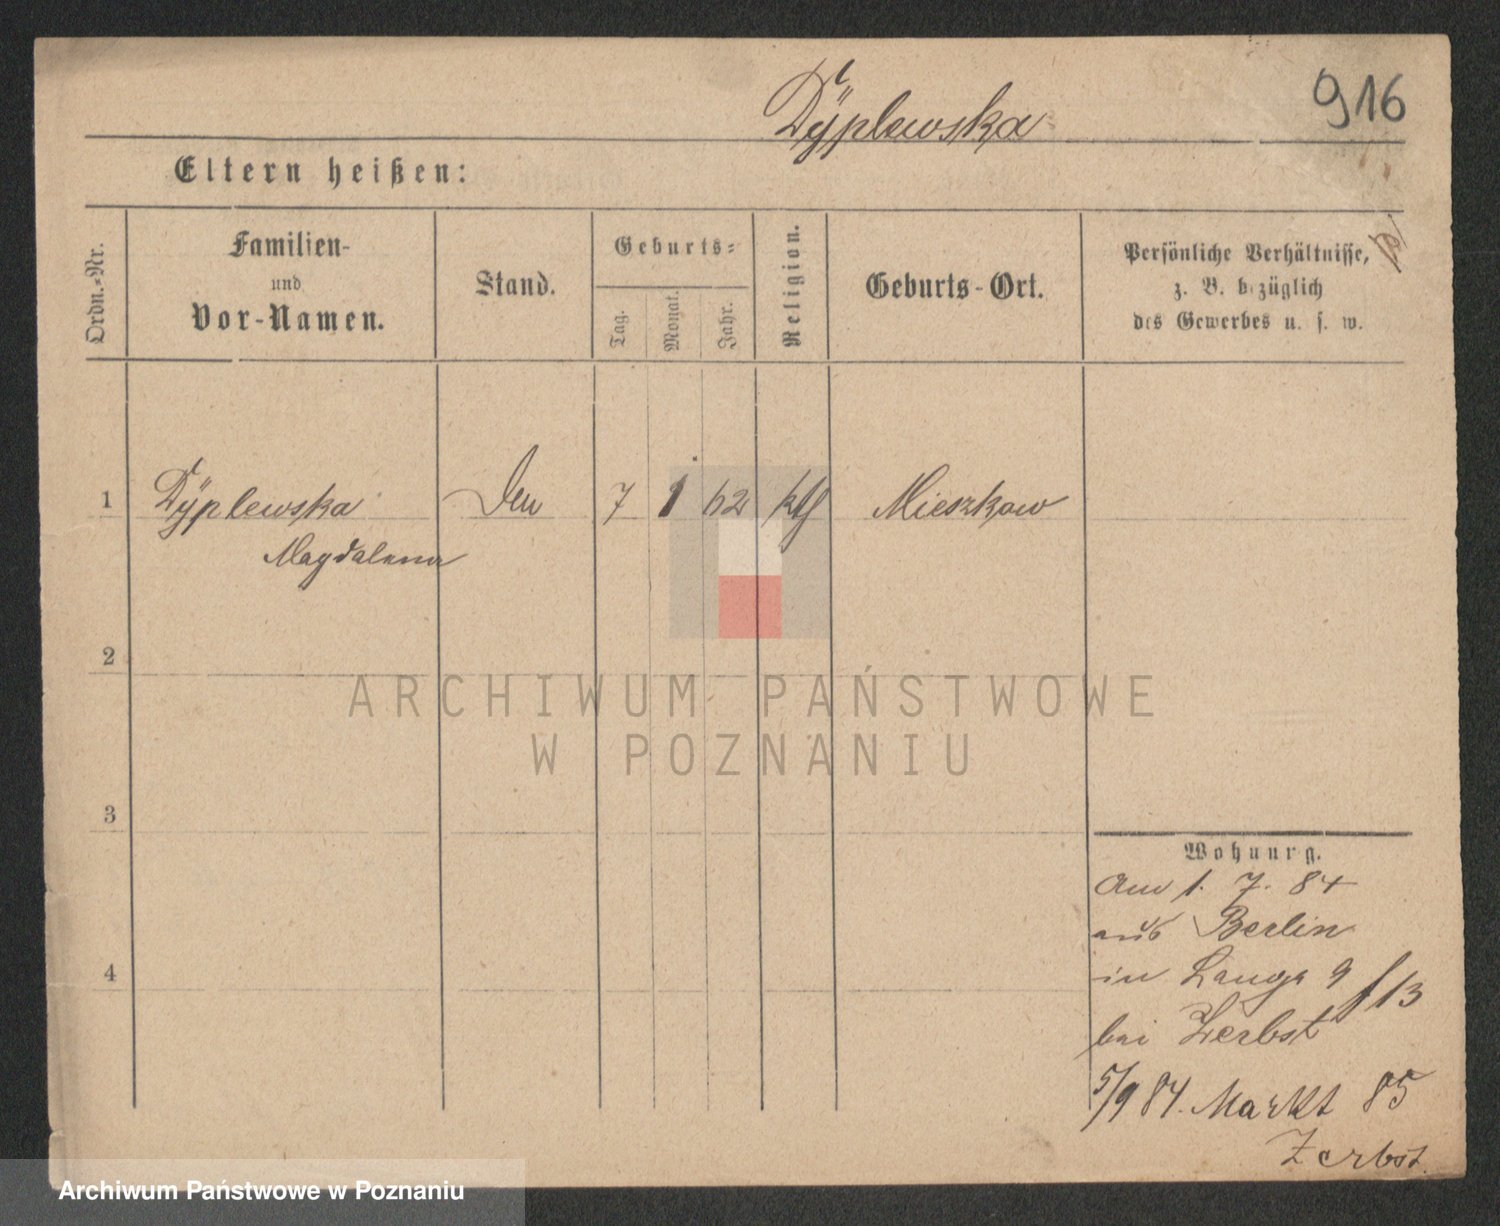 Dÿplewska
916
Eltern heißen:
Ordn.-Nr.
Familien-
und
Vor-Namen.
Stand.
Geburts-
Tag.
Monat.
Jahr.
Religion.
Geburts-Ort.
Persönliche Verhältnisse,
z. B. bezüglich
des Gewerbes u. s. w.
1 Dÿplewska 7 1 62 kth Mieszkow
Magdalena
2
ARCHIWUM PAŃSTWOWE
W POZNANIU
3
Wohnung.
Am 1. 7. 84
aus Berlin
in Lange 9
bei Zerbst
4
5/9 84. Markt 85
Zerbst.
Archiwum Państwowe w Poznaniu